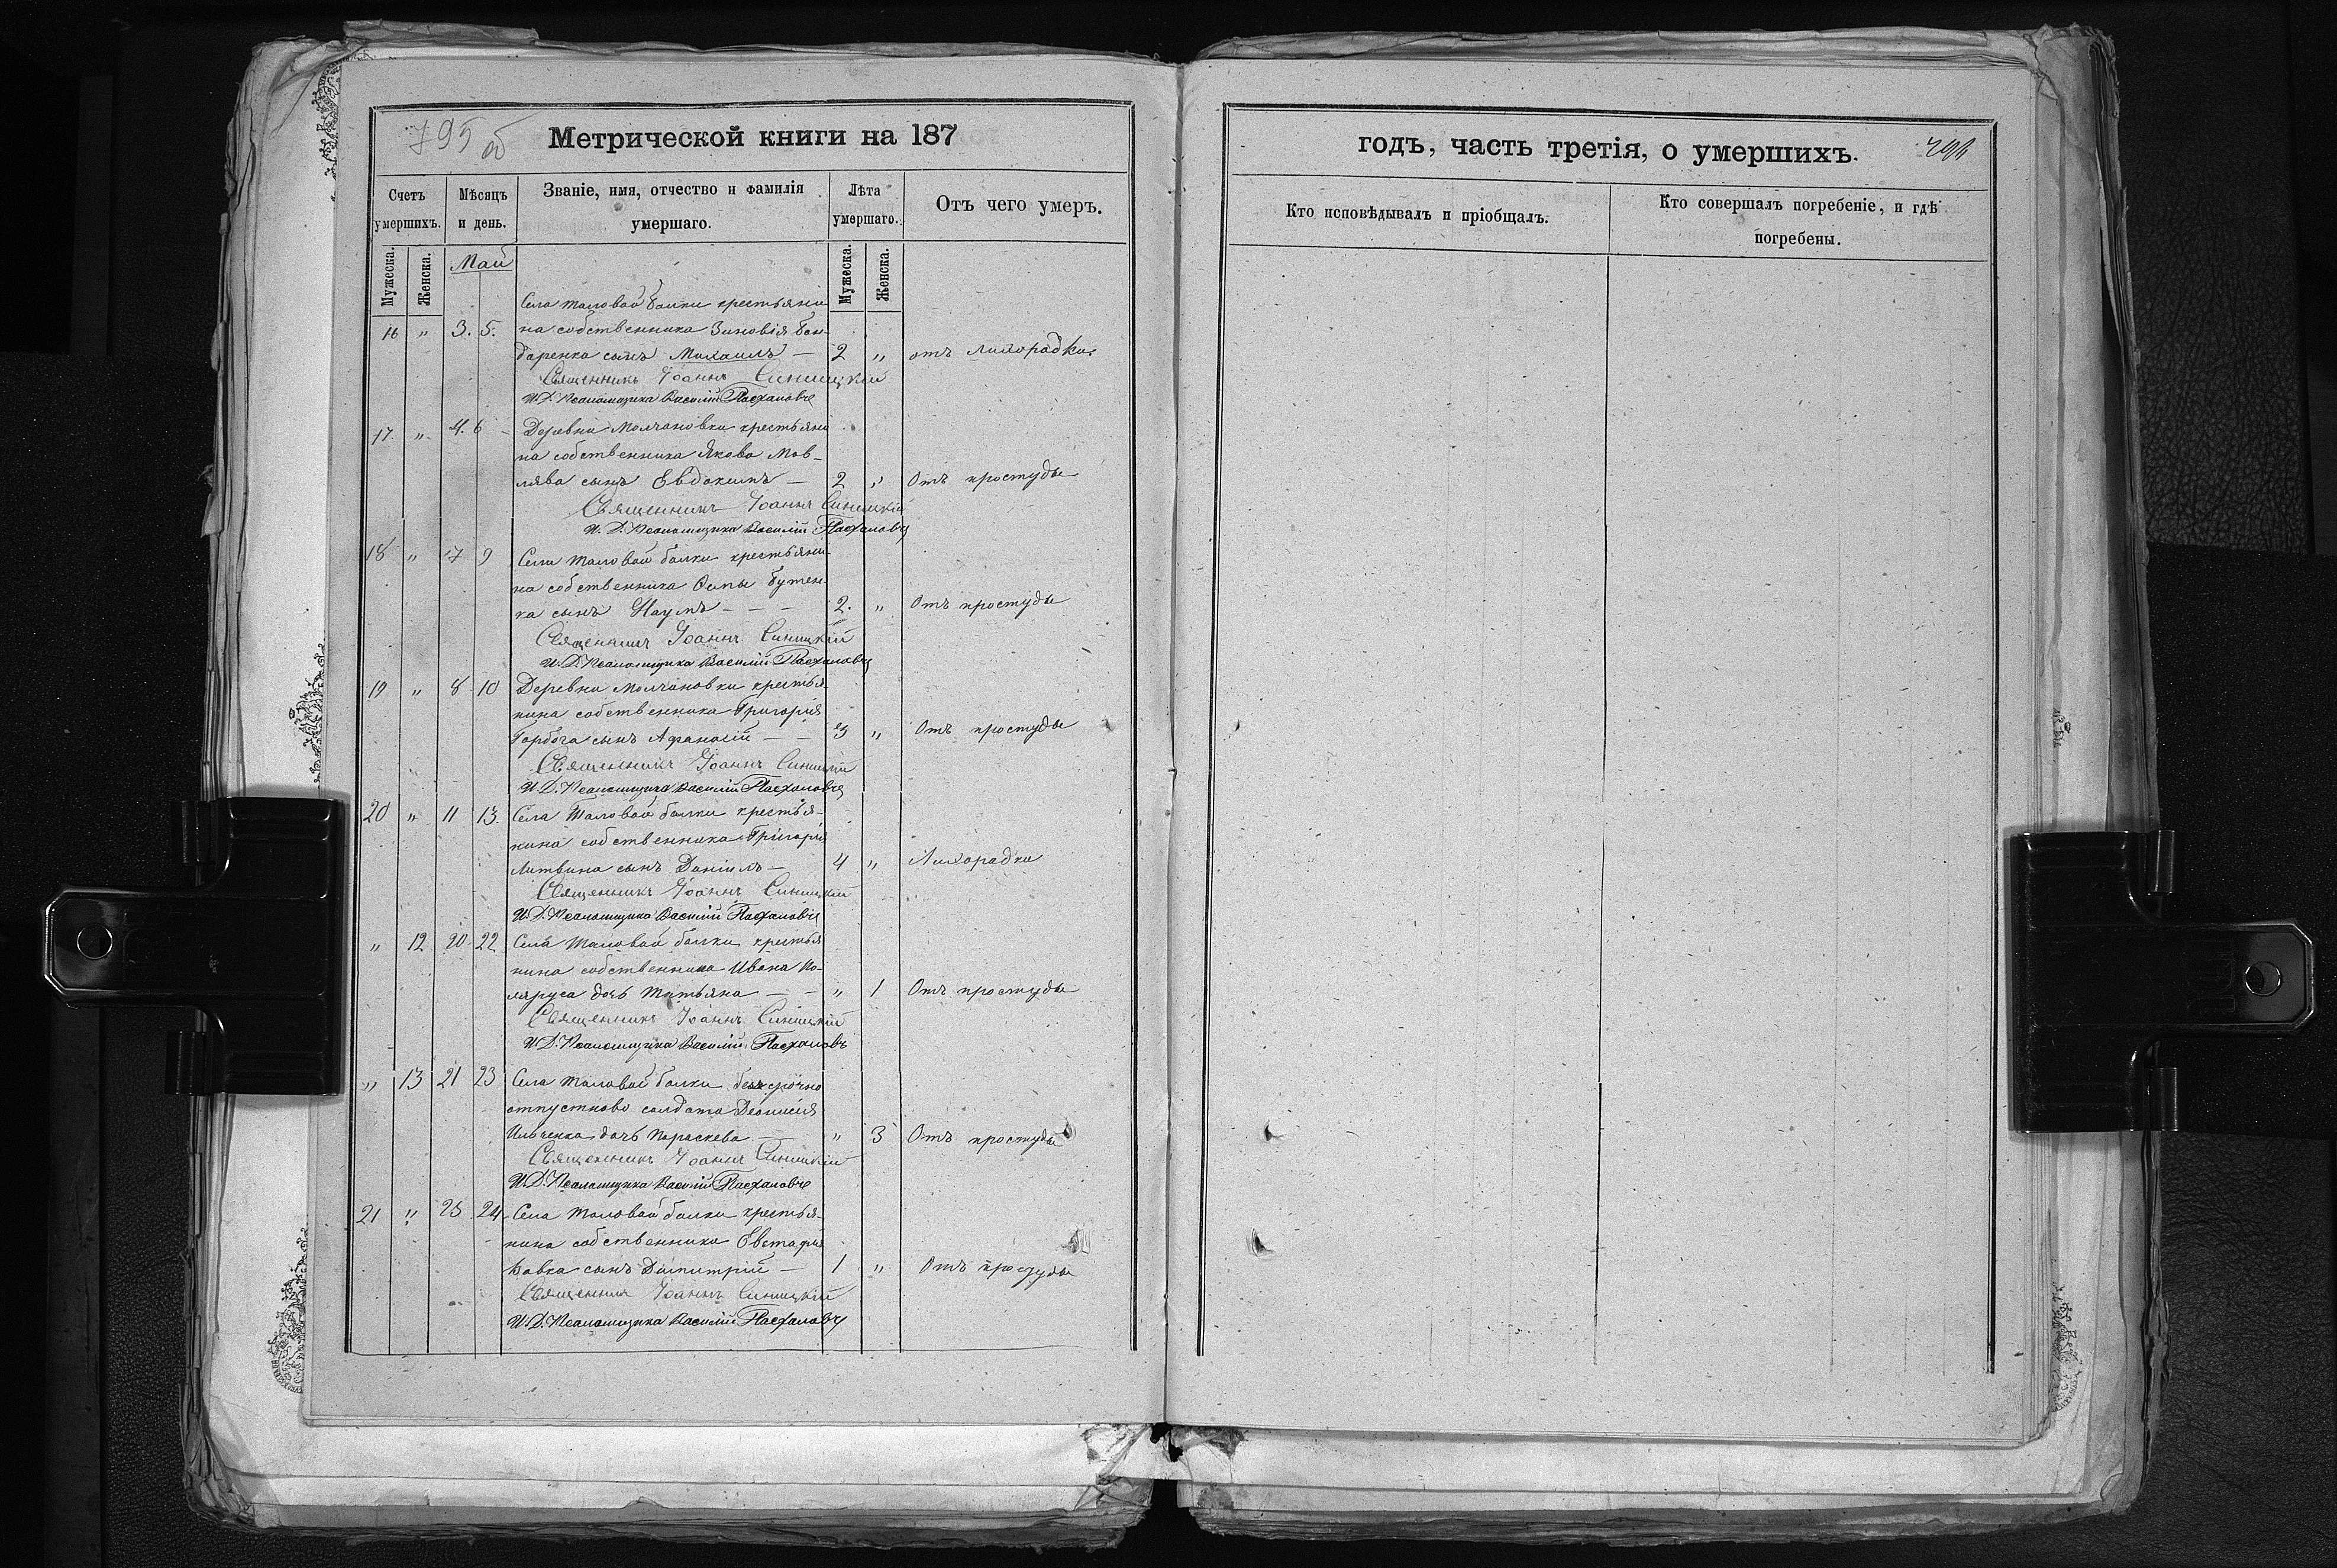 795 об
Метрической книги на 187
Счетъ умершихъ.
Мѣсяцъ и день.
Званіе, имя, отчество и фамилія умершаго.
Лѣта умершаго.
Отъ чего умеръ.
Мужеска.
Женска.
Май
Мужеска.
Женска.
Села Таловой балки крестьяни
16 " 3. 5. на собственника Зиновія Бон-
даренка сынъ Михаилъ — 2 " отъ лихорадки
Священникъ Іоаннъ Синицкій
И.Д. Псаломщика Василій
17. " 4. 6 Деревни Молчановки крестьяни
на собственника Якова Мов-
лява сынъ Евдокимъ — 2 " Отъ простуды
Священникъ Іоаннъ Синицкій
И.Д. Псаломщика Василій
18 " 7 9 Села Таловой балки крестьяни-
на собственника Осипы Бутен-
ка сынъ Наумъ — — — 2. " Отъ простуды
Священникъ Іоаннъ Синицкій
И.Д. Псаломщика Василій
19 " 8 10 Деревни Молчановки крестья-
нина собственника Григорія
сынъ Афанасій — — 3 " Отъ простуды
Священникъ Іоаннъ Синицкій
И.Д. Псаломщика Василій
20 " 11 13. Села Таловой балки крестья-
нина собственника Григорія
Литвина сынъ Даніилъ — 4 " Лихорадки
Священникъ Іоаннъ Синицкій
И.Д. Псаломщика Василій
" 12 20 22 Села Таловой балки крестья
нина собственника Ивана По-
ляруса дочь Татьяна — — " 1 Отъ простуды
Священникъ Іоаннъ Синицкій
И.Д. Псаломщика Василій
" 13 21 23 Села Таловой балки безсрочно
отпустново солдата Деонисія
Ильченка дочь Параскева " 3 Отъ простуды
Священникъ Іоаннъ Синицкій
И.Д. Псаломщика Василій
21 " 23 24 Села Таловой балки крестья-
нина собственника Евстафія
Вовка сынъ Димитрій — 1 " Отъ простуды
Священникъ Іоаннъ Синицкій
И.Д. Псаломщика Василій
годъ, часть третія, о умершихъ.
Кто исповѣдывалъ и пріобщалъ.
Кто совершалъ погребеніе, и гдѣ
погребены.